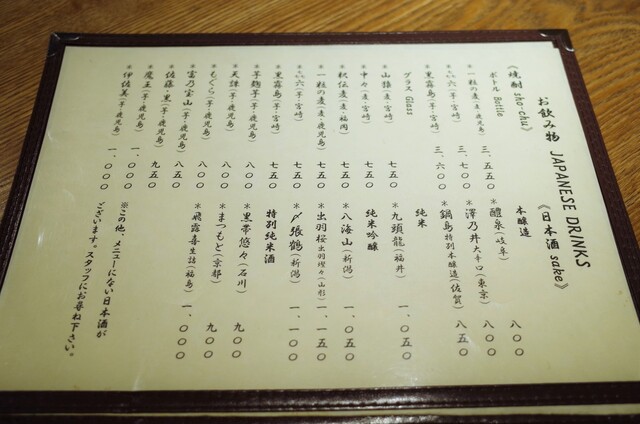 お飲み物 JAPANESE DRINKS
《焼酎 sho-chu》
ボトル Bottle
＊一粒の麦(麦・鹿児島) 三、五五〇
＊い六(芋・宮崎) 三、七〇〇
＊黒霧島(芋・宮崎) 三、六〇〇
グラス Glass
＊山猿(麦・宮崎) 七五〇
＊中々(麦・宮崎) 七五〇
＊秋伝麦(麦・福岡) 七五〇
＊一粒の麦(麦・鹿児島) 七五〇
＊い六(芋・宮崎) 七五〇
＊黒霧島(芋・宮崎) 七五〇
＊芋麹芋(芋・鹿児島) 八〇〇
＊天誅(米・鹿児島) 八〇〇
＊もぐら(芋・鹿児島) 八〇〇
＊富乃宝山(芋・鹿児島) 八五〇
＊佐藤・黒(芋・鹿児島) 八五〇
＊魔王(芋・鹿児島) 九五〇
＊伊佐美(芋・鹿児島) 一、〇〇〇
《日本酒 sake》
本醸造
＊醴泉(岐阜) 八〇〇
＊澤乃井大辛口(東京) 八〇〇
＊鍋島特別本醸造(佐賀) 八五〇
純米
＊九頭龍(福井) 一、〇五〇
純米吟醸
＊八海山(新潟) 一、〇五〇
＊出羽桜出羽燦々(山形) 一、一五〇
＊〆張鶴(新潟) 一、一〇〇
特別純米酒
＊黒帯悠々(石川) 九〇〇
＊まつもと(京都) 九〇〇
＊飛露喜生詰(福島) 一、〇〇〇
※この他、メニューにない日本酒が
ございます。スタッフにお尋ね下さい。